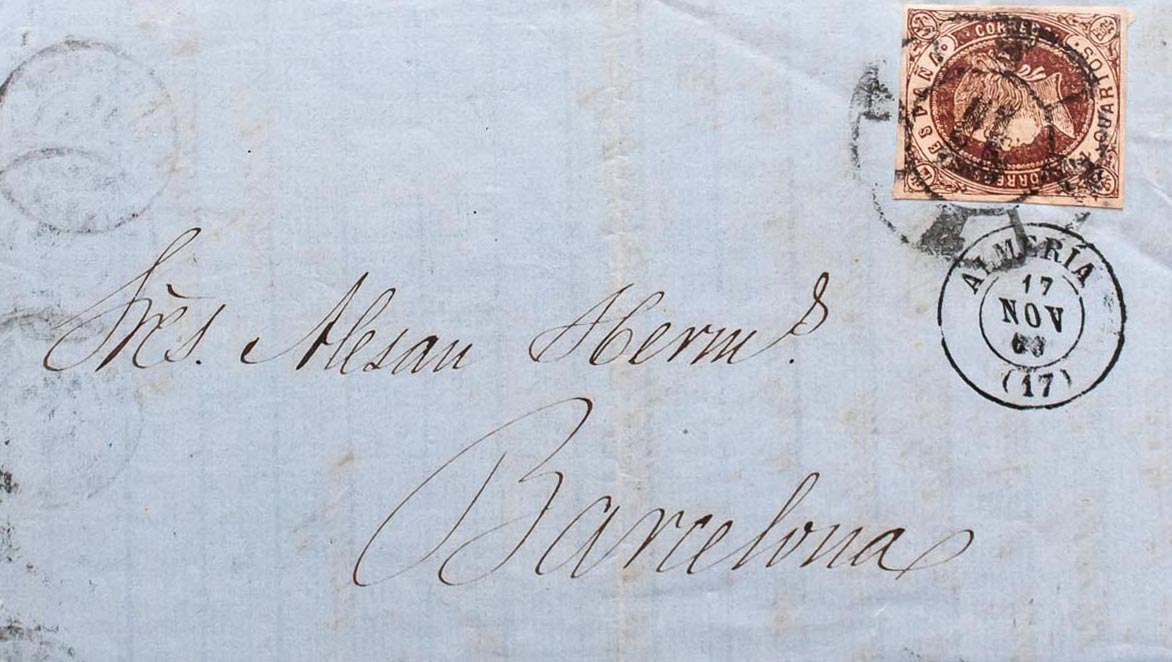 CORREOS
ESPAÑA
CUARTOS
CORREOS
ALMERÍA
17
NOV
63
(17)
Sres. Alesan Herms.
Barcelona